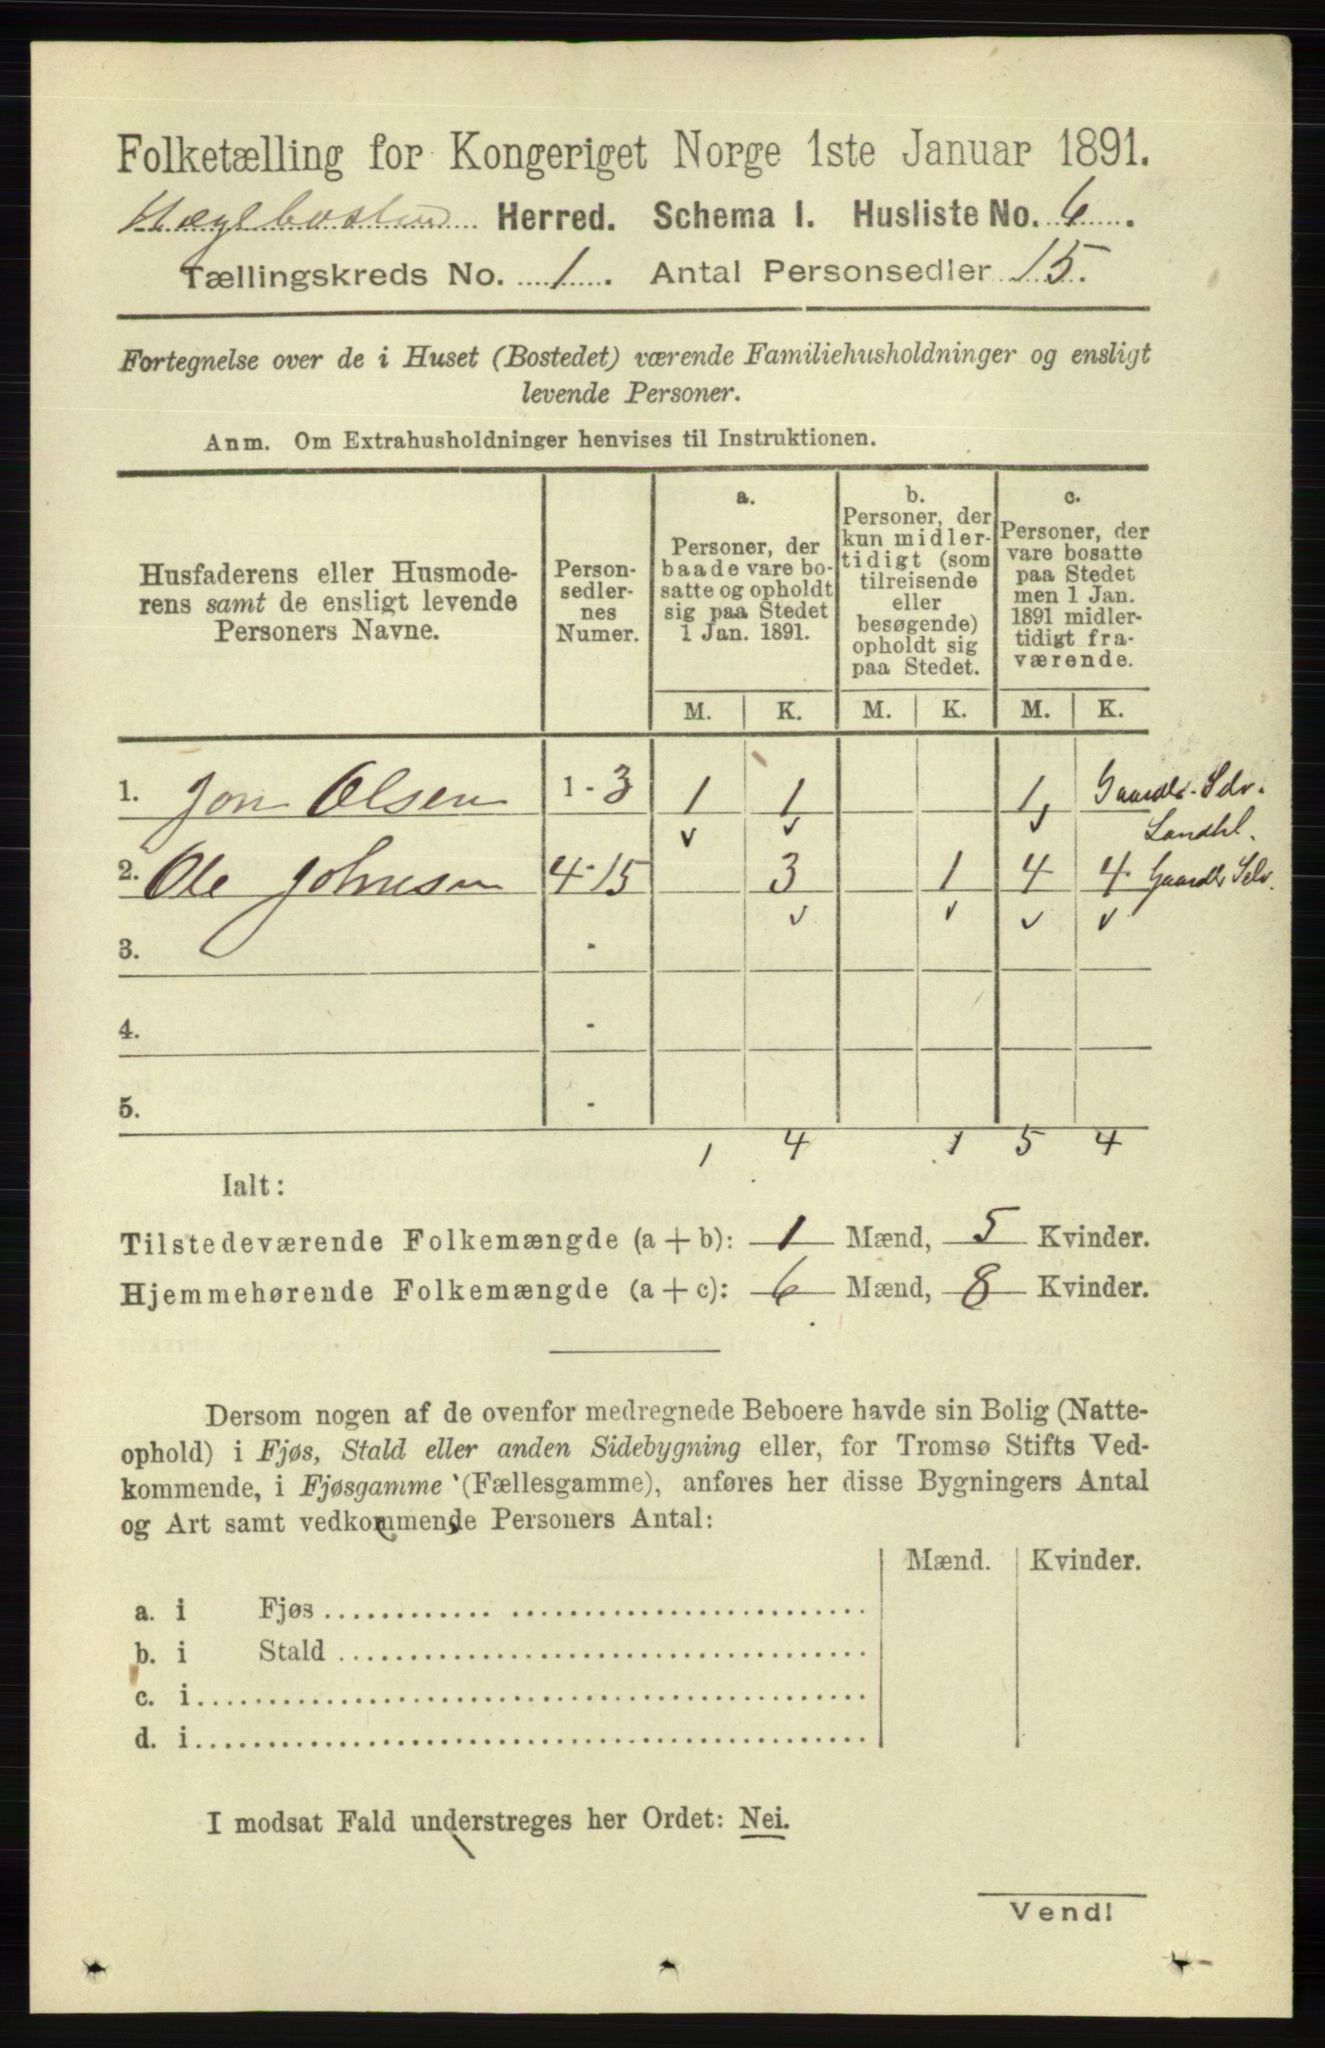 Folketælling for Kongeriget Norge 1ste Januar 1891.
Hægebostad Herred. Schema I. Husliste No. 6.
Tællingskreds No. 1. Antal Personsedler 15.
Fortegnelse over de i Huset (Bostedet) værende Familiehusholdninger og ensligt
levende Personer.
Anm. Om Extrahusholdninger henvises til Instruktionen.
Husfaderens eller Husmode-
rens samt de ensligt levende
Personers Navne.
Person-
sedler-
nes
Numer.
a.
Personer, der
baade vare bo-
satte og opholdt
sig paa Stedet
1 Jan. 1891.
b.
Personer, der
kun midler-
tidigt (som
tilreisende
eller
besøgende)
opholdt sig
paa Stedet.
c.
Personer, der
vare bosatte
paa Stedet
men 1 Jan.
1891 midler-
tidigt fra-
værende.
M. K. M. K. M. K.
1. Jon Olsen 1 - 3 1 1 1 Gaardbr. Selv.
Landhl.
2. Ole Johnsen 4 - 15 3 1 4 4 Gaardbr Selv.
3. -
4. -
5. -
1 4 1 5 4
Ialt:
Tilstedeværende Folkemængde (a + b): 1 Mænd, 5 Kvinder.
Hjemmehørende Folkemængde (a + c): 6 Mænd, 8 Kvinder.
Dersom nogen af de ovenfor medregnede Beboere havde sin Bolig (Natte-
ophold) i Fjøs, Stald eller anden Sidebygning eller, for Tromsø Stifts Ved-
kommende, i Fjøsgamme (Fællesgamme), anføres her disse Bygningers Antal
og Art samt vedkommende Personers Antal:
Mænd. Kvinder.
a. i Fjøs
b. i Stald
c. i
d. i
I modsat Fald understreges her Ordet: Nei.
Vend!